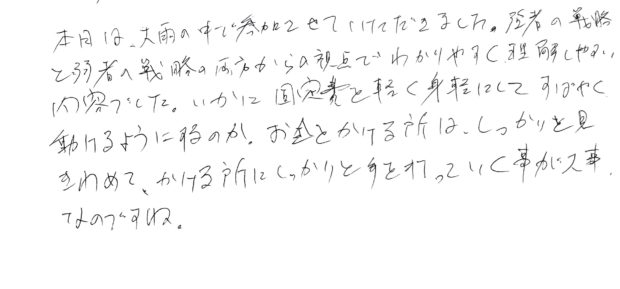 本日は、大雨の中で参加させていただきました。強者の戦略
と弱者の戦略の両方からの視点でわかりやすく理解しやすい
内容でした。いかに固定費を軽く身軽にしてすばやく
動けるようにするのか。お金をかける所は、しっかりと見
きわめて、かける所にしっかりと手を打っていく事が大事
なのですね。